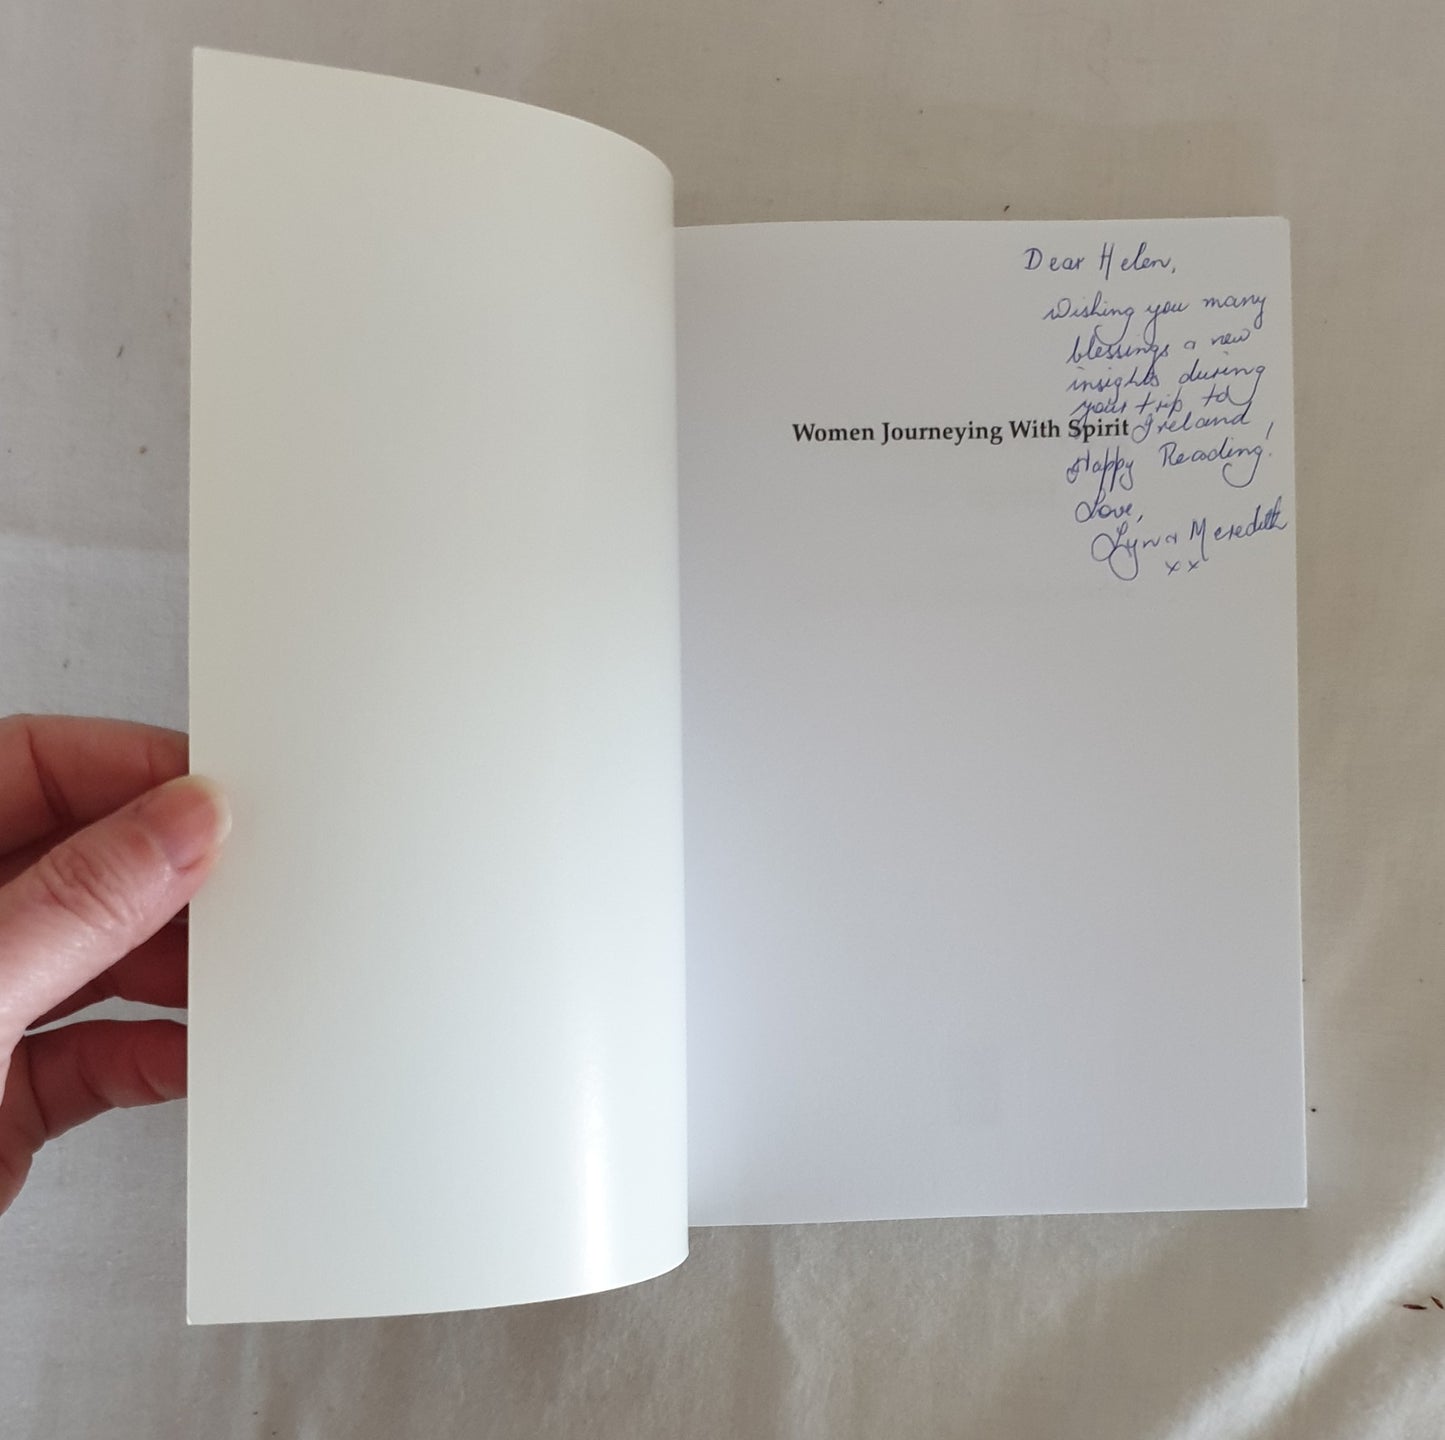 Dear Helen,
Wishing you many
blessings a new
insights during
your trip to
Women Journeying With Spirit Ireland
Happy Reading!
Love,
Lyn a Meredith
x x